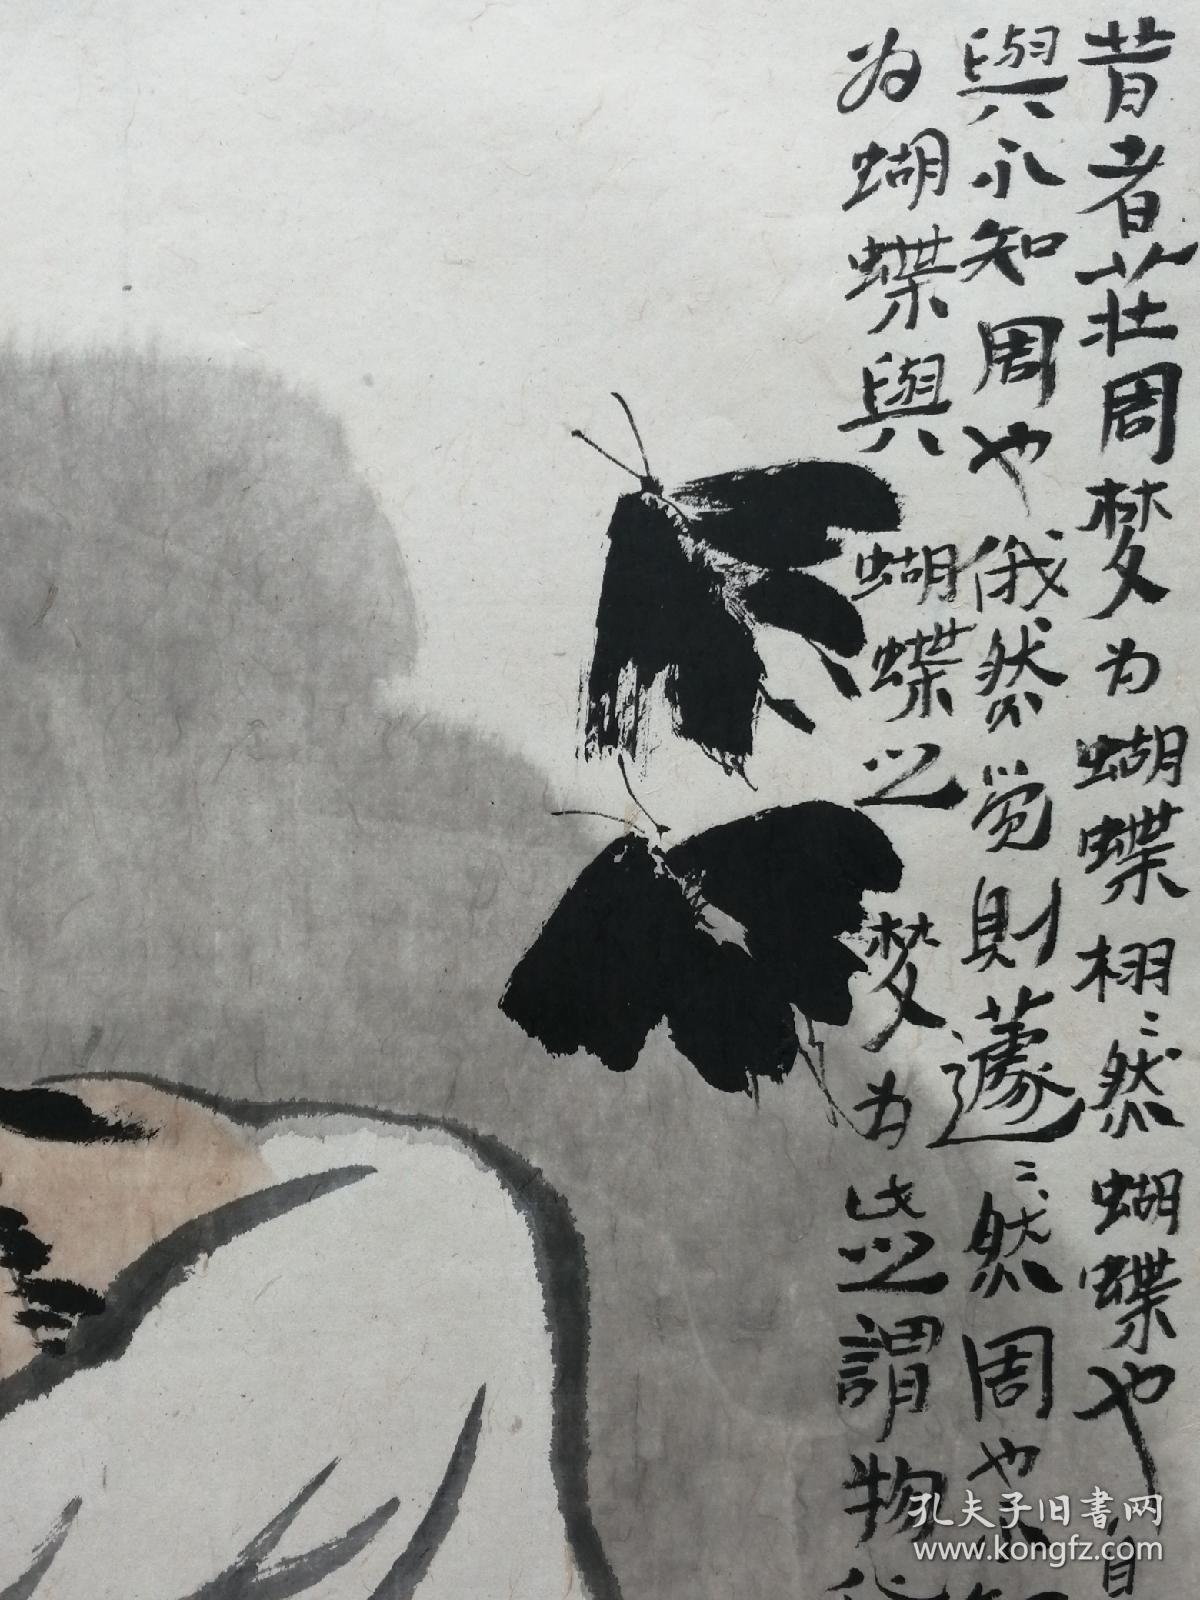 昔者莊周梦为蝴蝶栩〻然蝴蝶也自
與不知周也俄然觉則蘧〻然周也不知
为蝴蝶與蝴蝶之梦为
此之謂物化
孔夫子旧書网
www.kongfz.com